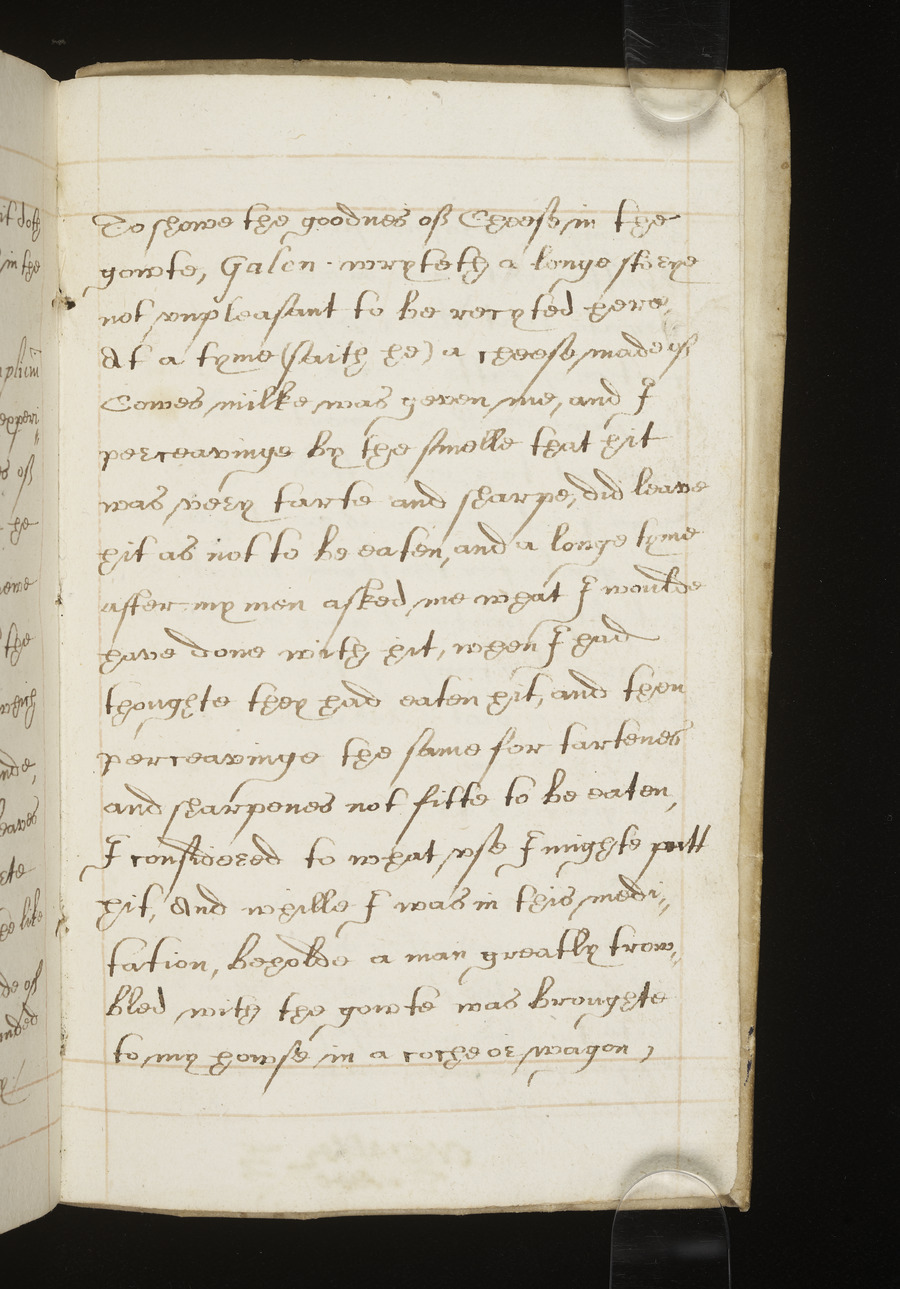 it doth
in the
experi„
es of
he
the
which
nde,
leaves
the like
de of
To showe the goodnes of Cheese, in the
gowte, Galen wryteth a longe storye
not vnpleasant to be recyted here,
At a tyme (saith he) a cheese, made of
Cowes milke was geven me, and I
perceavinge by the smelle that hit
was very tarte and sharpe, did leave
hit as not to be eaten, and a longe tyme
after my men asked me what I woulde
have done with hit, when I had
thoughte they had eaten hit, and then
perceavinge the same for tartenes
and sharpenes not fitte to be eaten,
I considered to what vse I mighte putt
hit, And whille I was in this medi„
tation, beholde a man greatly trow„
bled with the gowte was broughte
to my howse in a coche or wagon,